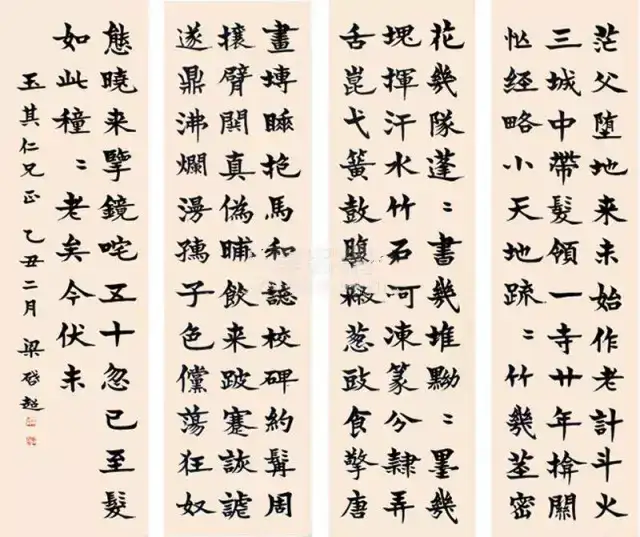 茫父墮地来未始作老計斗火
三城中帶髮領一寺廿年揜關
忙經略小天地疏〻竹幾茎密
花幾隊蓬〻書幾堆黝〻墨幾
塊揮汗水竹石河凍篆分隸弄
舌崑弋簧鼓腹椒葱豉食擎唐
畫塼睡抱馬和誌校碑約髯周
攘臂閧真偽晡飲来跛蹇詼謔
遂鼎沸爛漫孺子色儻蕩狂奴
態曉来擥鏡咤五十忽已至髮
如此種〻老矣今伏未
玉其仁兄正 乙丑二月 梁啓超